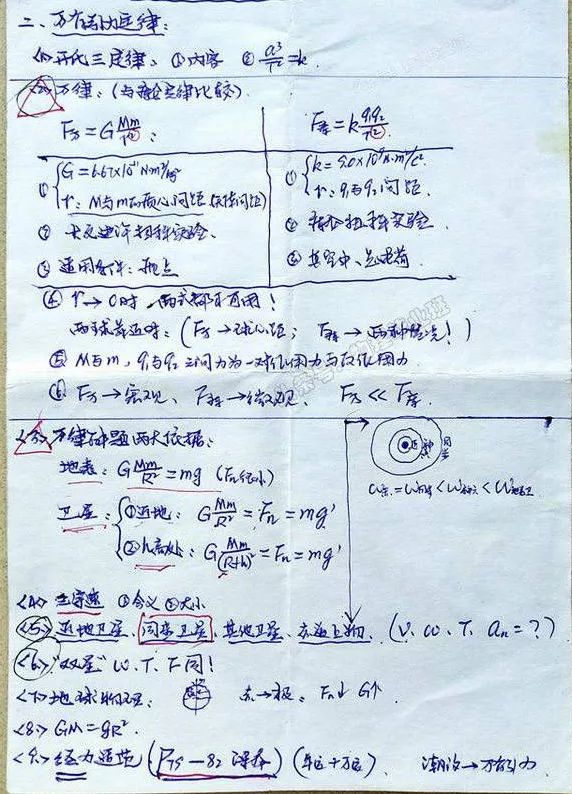 二、万有引力定律:
<1>开氏三定律: ①内容 ② a³/T²=k.
<2>万律: (与库仑定律比较)
F万=G Mm/r² ; F库=k q₁q₂/r².
① { G=6.67×10⁻¹¹N·m²/kg² ① { k=9.0×10⁹N·m²/C².
r: M与m的质心间距 r: q₁与q₂间距.
② 卡文迪许扭秤实验. ② 库仑扭秤实验.
③ 适用条件: 质点 ③ 真空中、点电荷
④ r→0时 两式都不可用!
两球靠近时: (F万→球心距; F库→两种情况!)
⑤ M与m, q₁与q₂之间力为一对作用力与反作用力
⑥ F万→宏观、F库→微观. F万 << F库
<3>万律解题两大依据:
地表: G Mm/R²=mg (Fn很小)
卫星: { ①近地: G Mm/R²=Fn=mg'
②h高处: G Mm/(R+h)²=Fn=mg'
近 同步
<4> 三宇速 ①含义 ②大小
<5> 近地卫星、同步卫星、其他卫星、赤道上物. (v. ω. T. an=?)
<6> "双星" ω、T、F同!
<7>地球 赤→极: Fn↓ G↑
<8> GM=gR².
<9> (P75—82 ) 潮汐→万有引力